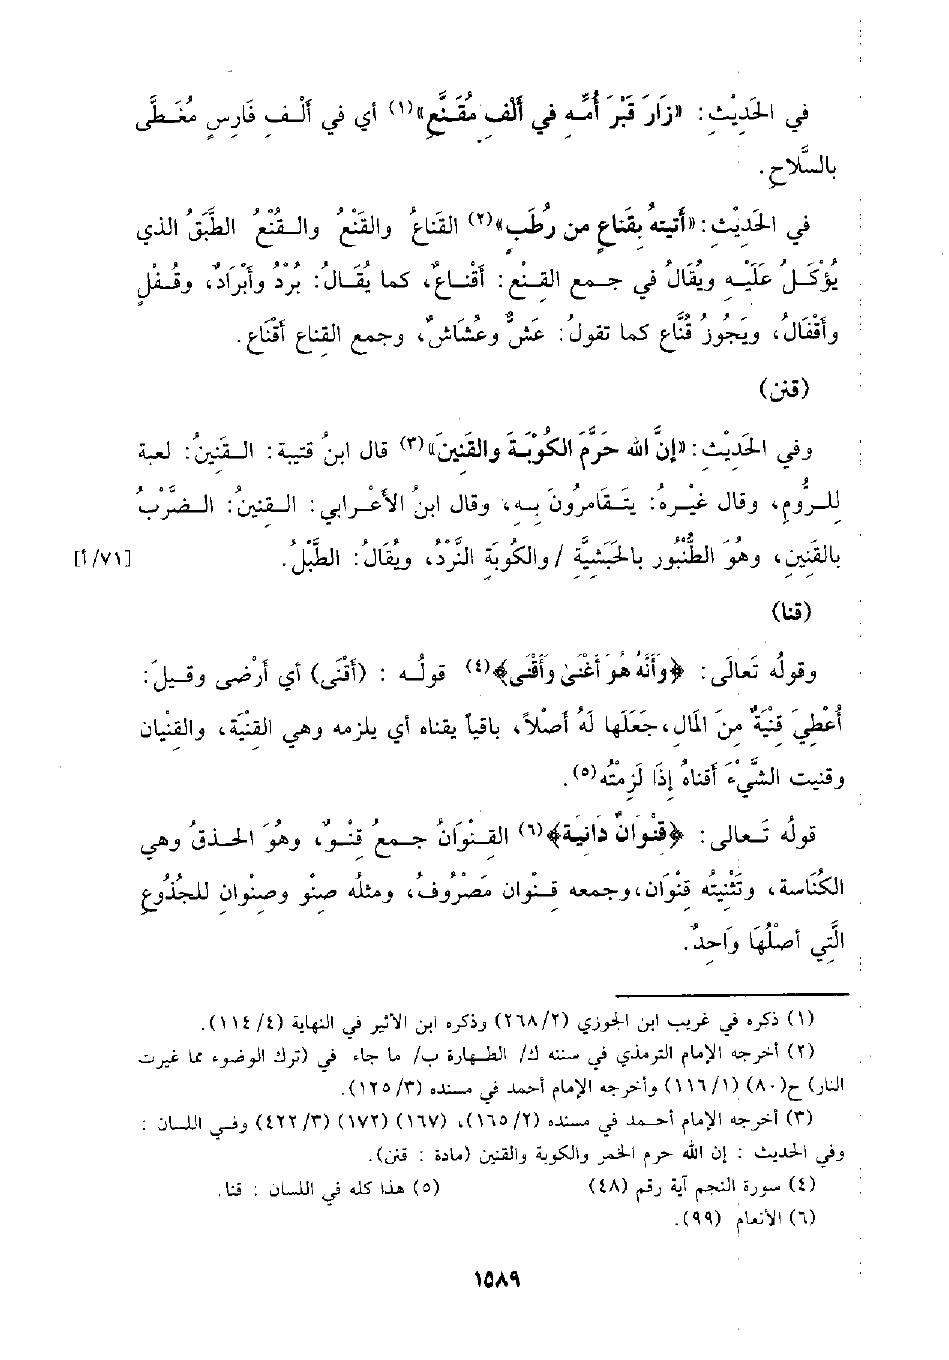 في الحَدِيْثِ: «زَارَ قَبْرَ أُمِّهِ في أَلْفِ مُقَنَّعٍ»(١) أي في أَلْفِ فَارِسٍ مُغَطَّى
بالسَّلاحِ.
في الحَدِيْثِ: «أتيته بِقِنَاعٍ من رُطَبٍ»(٢) القِنَاعُ والقِنْعُ والقُنْعُ الطَّبَقُ الذي
يُؤْكَلُ عَلَيْهِ ويُقَالُ في جمع القِنْعِ: أقْنَاعٌ، كما يُقَالُ: بُرْدٌ وأبْرَادٌ، وقُفْلٍ
وأقْفَالُ، ويَجُوزُ قُنَّاعٌ كما تقولُ: عَشٌّ وعُشَاشٌ، وجمع القِناعِ أقْنَاعٍ.
(قنن)
وفي الحَدِيْثِ: «إنَّ الله حَرَّمَ الكُوْبَةَ والقِنِينَ»(٣) قال ابنُ قتيبة: القِنِينُ: لعبة
لِلرُّومِ، وقال غيْرهُ: يَتَقَامرُونَ بِهِ، وقال ابنُ الأعْرابي: القِنينُ: الضَّرْبُ
بالقِنِينِ، وهُوَ الطُّنْبُور بالحَبَشِيَّةِ / والكُوبَةِ النَّرْدُ، ويُقَالُ: الطَّبْلُ. [٧١/أ]
(قنا)
وقولُه تَعالَى: ﴿وَأَنَّهُ هُوَ أَغْنَى وَأَقْنَى﴾(٤) قولُه : (أَقْنَى) أي أرْضى وقيلَ:
أُعْطِيَ قِنيَةٌ مِنَ المَالِ، جَعَلَها لَهُ أصْلاً، باقياً يقناه أي يلزمه وهي القِنْيَة، والقِنْيان
وقنيت الشَّيْءَ أقناهُ إذَا لَزِمْتُه(٥).
قولُه تَعالى: ﴿قِنْوَانٌ دَانِيَة﴾(٦) القِنْوَانُ جمعُ قِنْوٌ، وهُوَ الحذقُ وهي
الكُنَاسة، وتَثْنِيتُه قِنْوَانِ، وجمعه قِنْوان مَصْرُوفٌ، ومثلُه صِنْو وصِنْوان للجُذُوعِ
الَّتِي أصْلُهَا وَاحِدٌ.
(١) ذكره في غريب ابن الجوزي (٢/ ٢٦٨) وذكره ابن الأثير في النهاية (٤/ ١١٤).
(٢) أخرجه الإمام الترمذي في سننه ك/ الطهارة ب/ ما جاء في (ترك الوضوء مما غيرت
النار) ح(٨٠) (١/ ١١٦) وأخرجه الإمام أحمد في مسنده (٣/ ١٢٥).
(٣) أخرجه الإمام أحمد في مسنده (٢/ ١٦٥)، (١٦٧) (١٧٢) (٣/ ٤٢٢) وفي اللسان :
وفي الحديث : إن الله حرم الخمر والكوبة والقنين (مادة : قنن).
(٤) سورة النجم آية رقم (٤٨) (٥) هذا كله في اللسان : قنا.
(٦) الأنعام (٩٩).
١٥٨٩